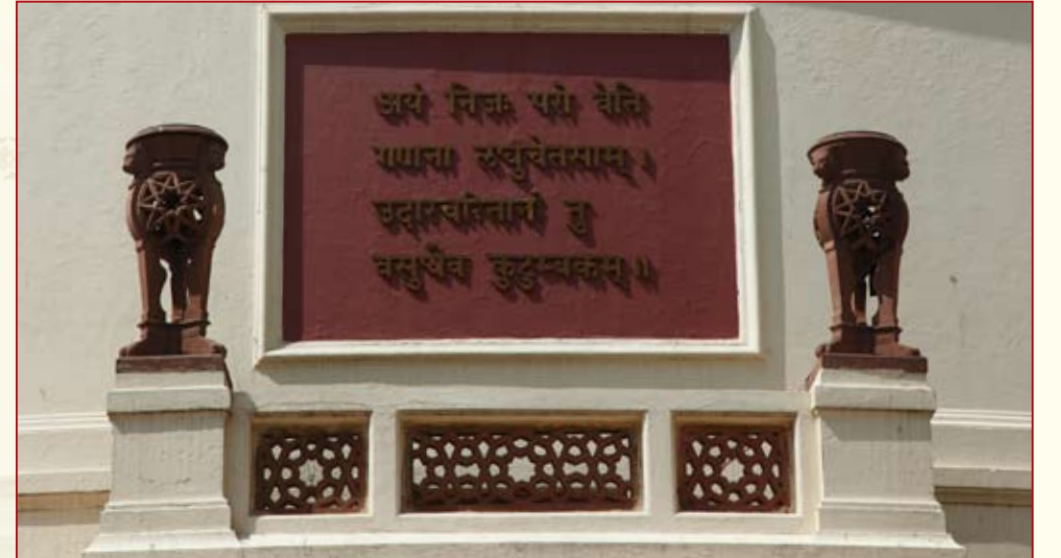 अयं निजः परो वेति
गणना लघुचेतसाम् ।
उदारचरितानां तु
वसुधैव कुटुम्बकम् ॥